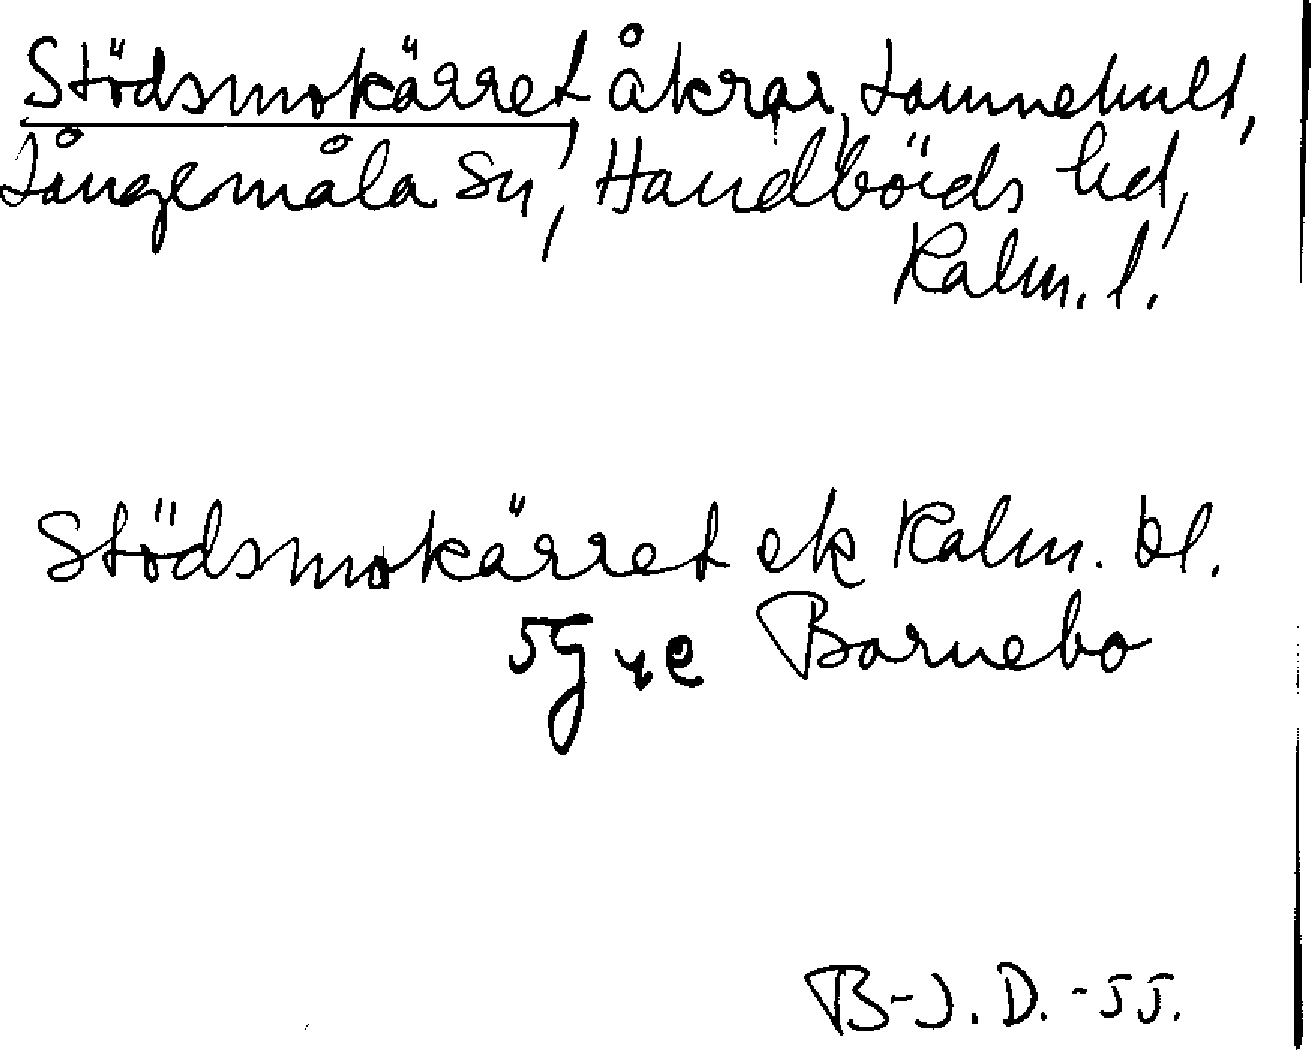 Stödsmokärret, åkrar, Lannehult,
Långemåla sn, Handbörds hd,
Kalm. l.
Stödsmokärret ek Kalm. bl.
5G 4e Barnebo
B-J. D. -55.